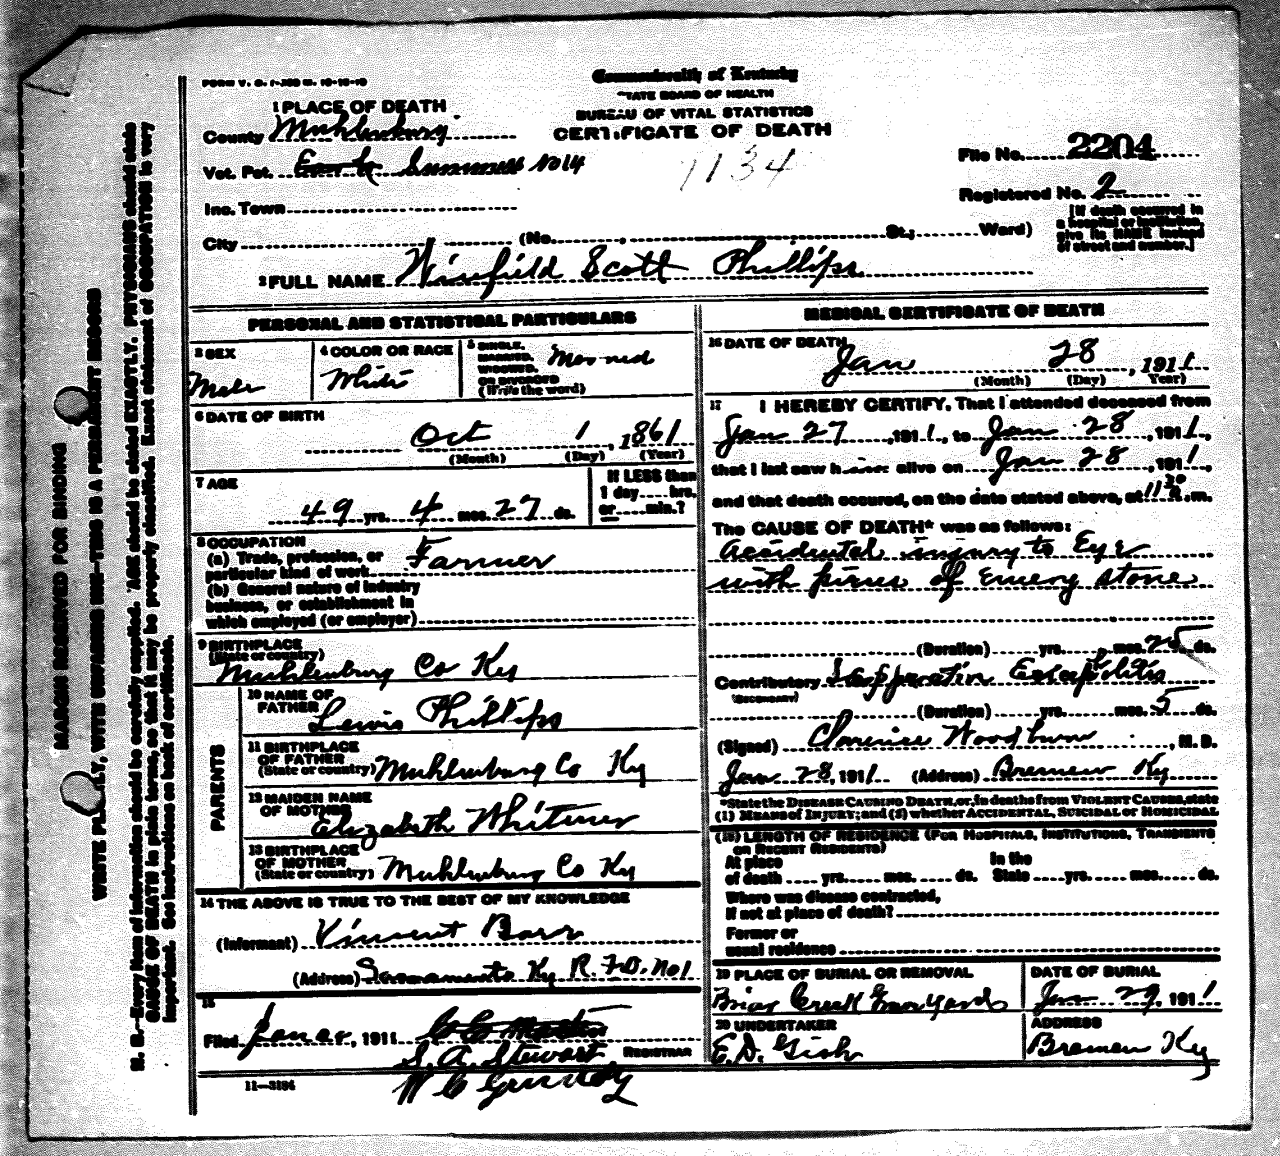 Commonwealth of Kentucky
STATE BOARD OF HEALTH
BUREAU OF VITAL STATISTICS
CERTIFICATE OF DEATH
1134
1 PLACE OF DEATH
County Muhlenburg
Vot. Pct. No 14
Inc. Town
City (No. , St.; Ward)
File No. 2204
Registered No. 2
[If death occurred in
a hospital or institution,
give its NAME instead
of street and number.]
2 FULL NAME Winfield Scott Phillips
PERSONAL AND STATISTICAL PARTICULARS
3 SEX
Male
4 COLOR OR RACE
White
5 SINGLE,
MARRIED,
WIDOWED,
OR DIVORCED
(Write the word)
Married
6 DATE OF BIRTH
Oct 1, 1861
(Month) (Day) (Year)
7 AGE
49 yrs. 4 mos. 27 ds.
If LESS than
1 day hrs.
or min.?
8 OCCUPATION
(a) Trade, profession, or
particular kind of work Farmer
(b) General nature of industry
business, or establishment in
which employed (or employer)
9 BIRTHPLACE
(State or country)
Muhlenburg Co Ky
PARENTS
10 NAME OF
FATHER
Lewis Phillips
11 BIRTHPLACE
OF FATHER
(State or country) Muhlenburg Co Ky
12 MAIDEN NAME
OF MOTHER
Elizabeth Whitmer
13 BIRTHPLACE
OF MOTHER
(State or country) Muhlenburg Co Ky
14 THE ABOVE IS TRUE TO THE BEST OF MY KNOWLEDGE
(Informant) Vincent Barr
(Address) Sacramento Ky R.F.D. No 1
15
Filed , 1911
S. A. Stewart REGISTRAR
W C
11—3184
MEDICAL CERTIFICATE OF DEATH
16 DATE OF DEATH
Jan 28, 1911
(Month) (Day) Year)
17 I HEREBY CERTIFY, That I attended deceased from
Jan 27, 1911, to Jan 28, 1911,
that I last saw h alive on Jan 28, 1911,
and that death occured, on the date stated above, at 11 30 m.
The CAUSE OF DEATH* was as follows:
Accidental injury to Eye
with pieces of Emery stone
(Duration) yrs. mos. 25 ds.
Contributory
(SECONDARY)
(Duration) yrs. mos. 5 ds.
(Signed) Clarence Woodburn, M. D.
Jan 28, 1911 (Address) Bremen Ky
*State the DISEASE CAUSING DEATH, or, in deaths from VIOLENT CAUSES, state
(1) MEANS of INJURY; and (2) whether ACCIDENTAL, SUICIDAL or HOMICIDAL
(18) LENGTH OF RESIDENCE (FOR HOSPITALS, INSTITUTIONS, TRANSIENTS
OR RECENT RESIDENTS)
At place
of death yrs. mos. ds.
In the
State yrs. mos. ds.
Where was disease contracted,
if not at place of death?
Former or
usual residence
19 PLACE OF BURIAL OR REMOVAL
Briar Creek Graveyard
DATE OF BURIAL
Jan 29, 1911
20 UNDERTAKER
E.D. Gish
ADDRESS
Bremen Ky
MARGIN RESERVED FOR BINDING
WRITE PLAINLY, WITH UNFADING INK—THIS IS A PERMANENT RECORD
N. B.—Every item of information should be carefully supplied. AGE should be stated EXACTLY. PHYSICIANS should state
CAUSE OF DEATH in plain terms, so that it may be properly classified. Exact statement of OCCUPATION is very
important. See instructions on back of certificate.